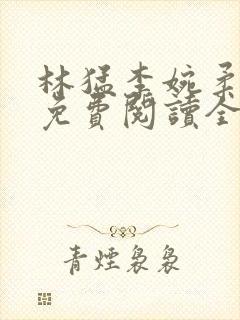 林猛李婉柔
免費閱讀全
青煙裊裊